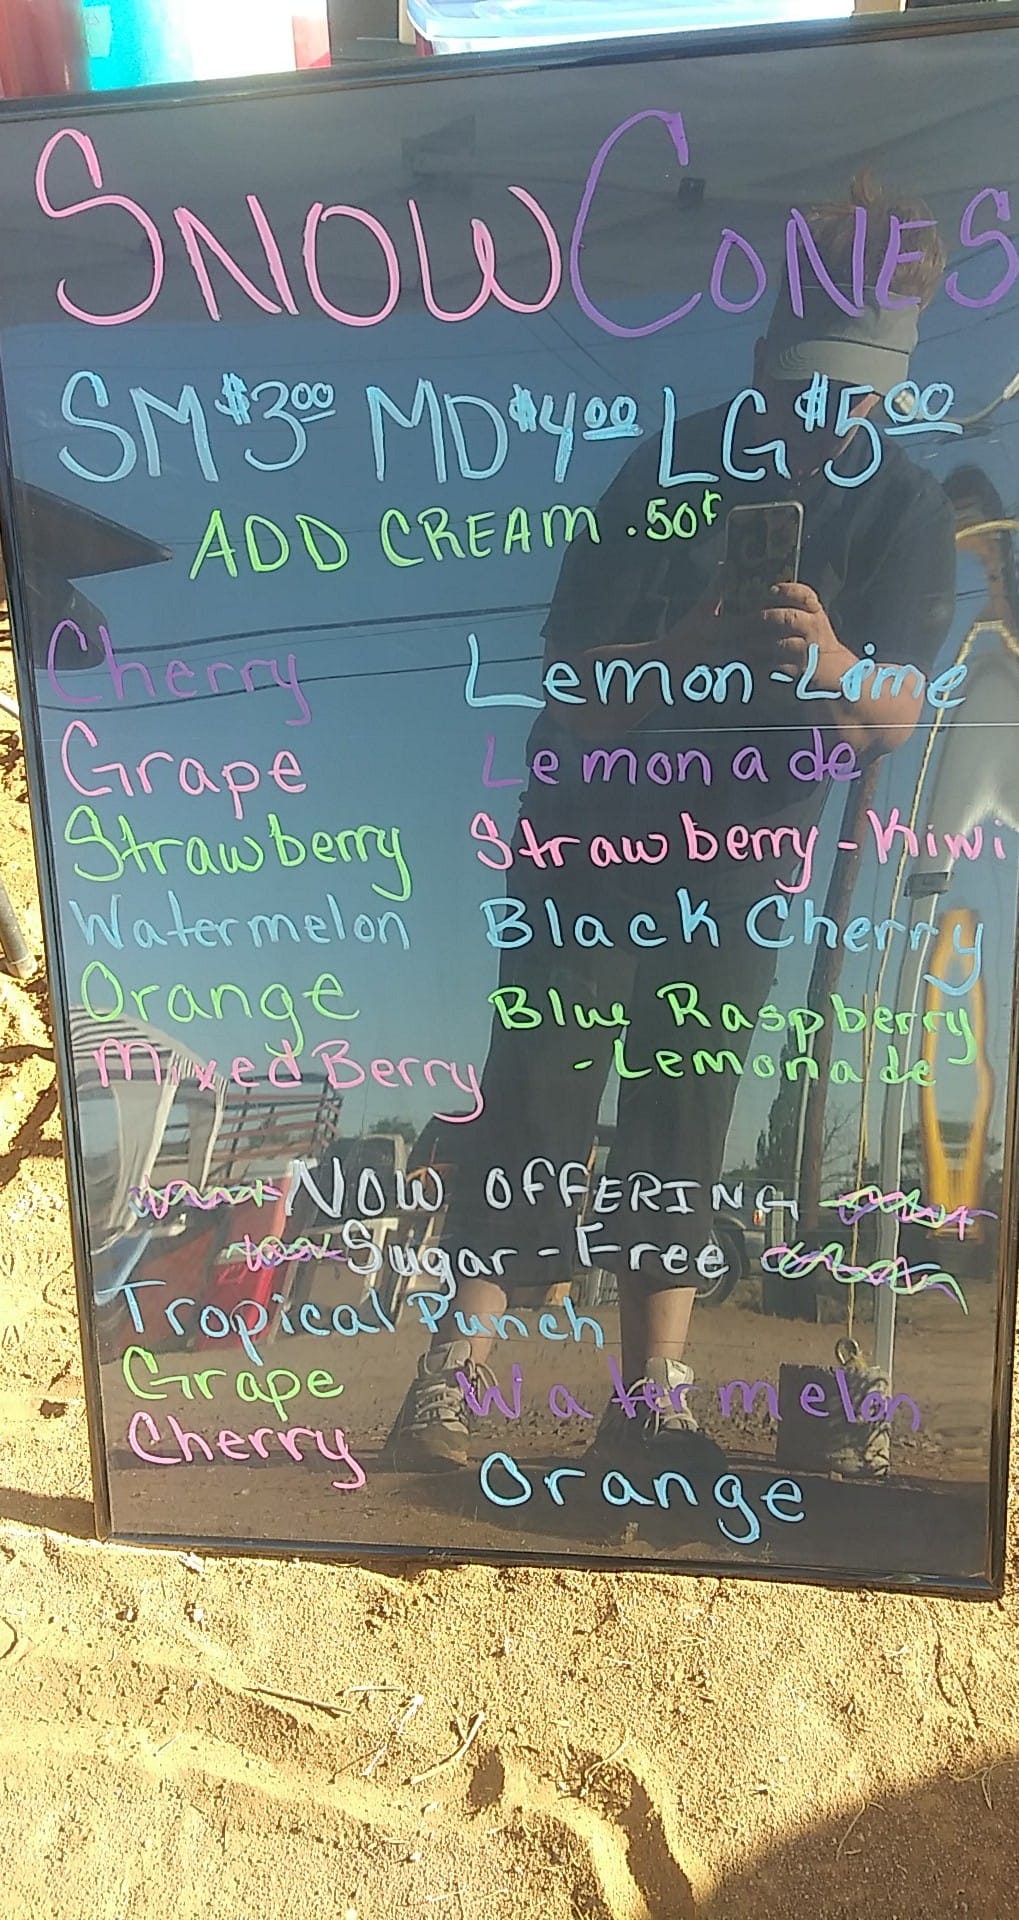 SNOW CONES
SM $3.00 MD $4.00 LG $5.00
ADD CREAM .50¢
Cherry
Grape
Strawberry
Watermelon
Orange
Mixed Berry
Lemon-Lime
Lemonade
Strawberry-Kiwi
Black Cherry
Blue Raspberry
-Lemonade
NOW OFFERING
Sugar-Free
Tropical Punch
Grape
Cherry
Watermelon
Orange